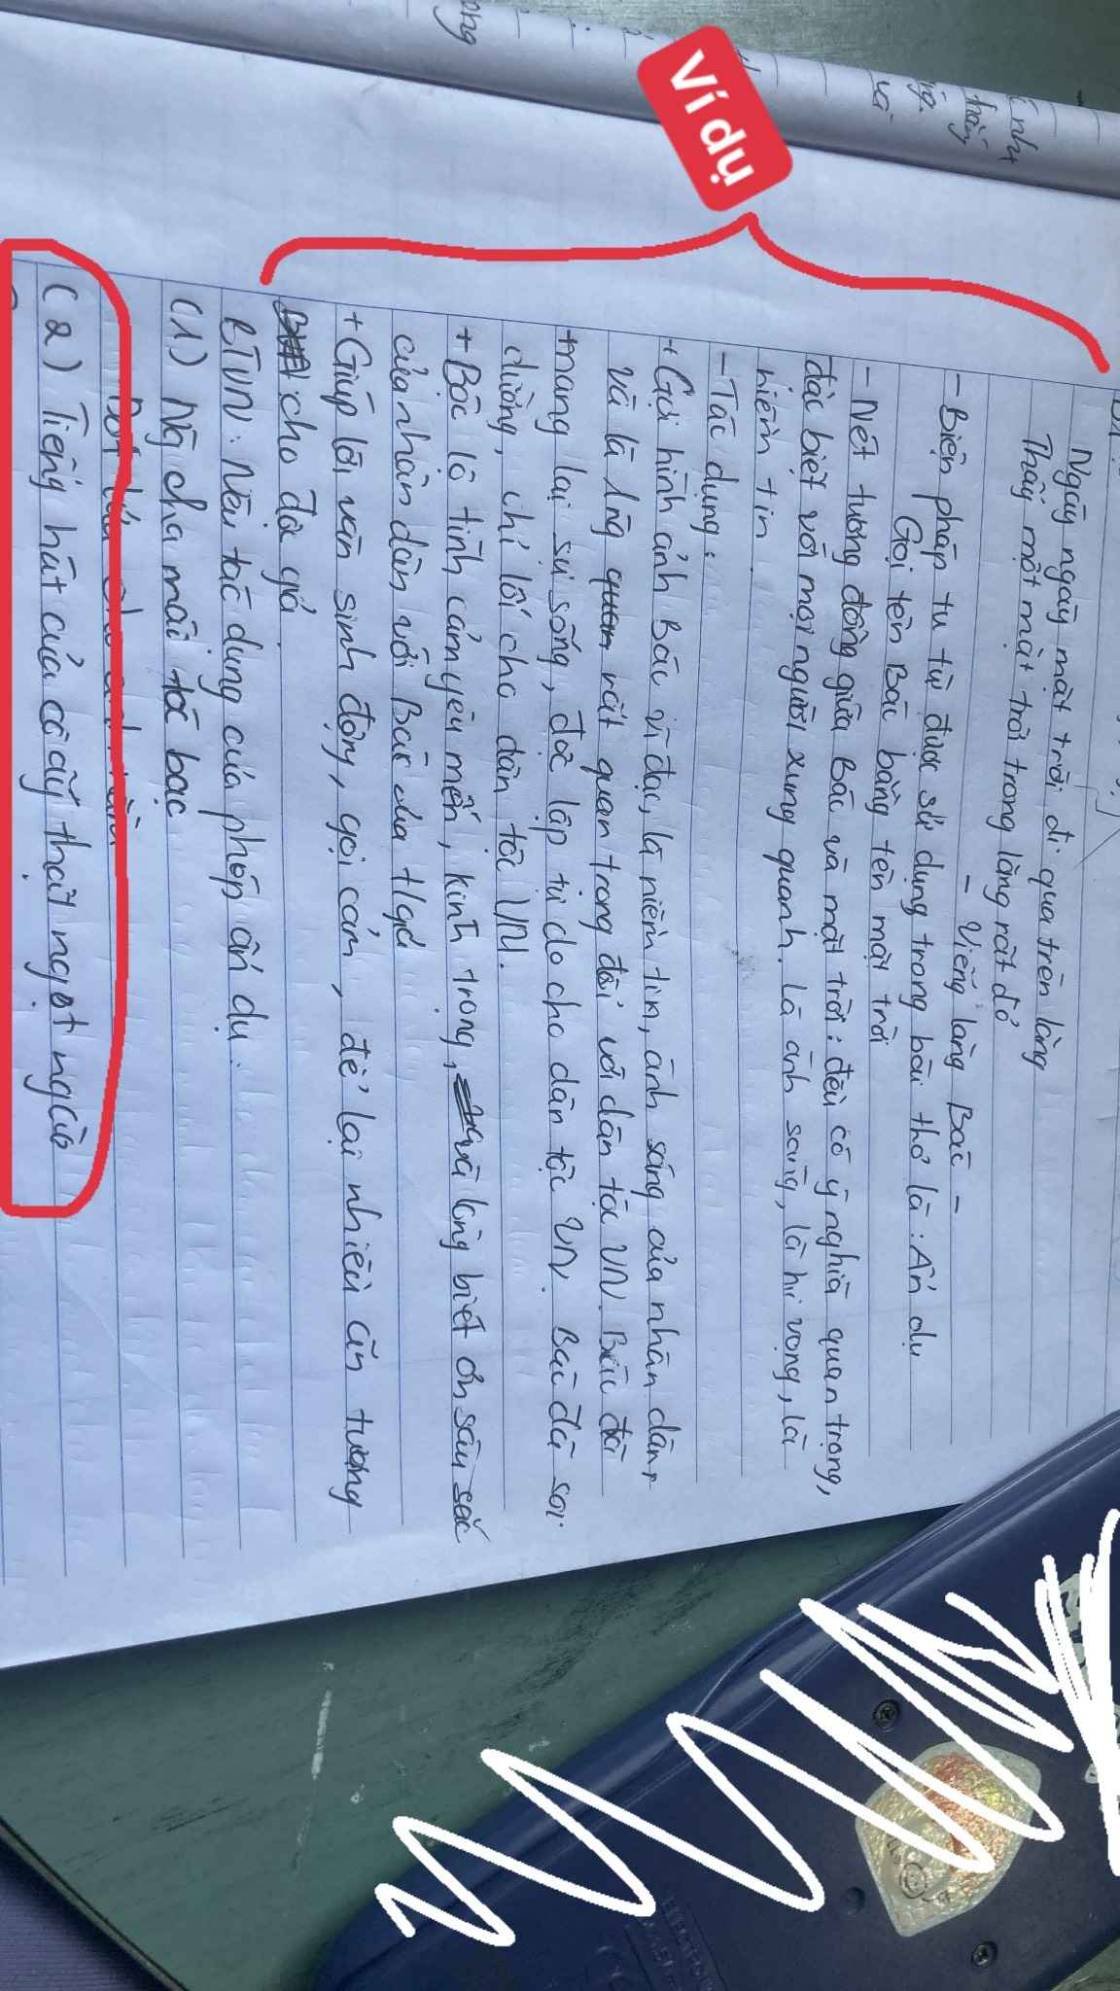 Ngày ngày mặt trời đi qua trên lăng
Thấy một mặt trời trong lăng rất đỏ
- Viếng lăng Bác -
- Biện pháp tu từ được sử dụng trong bài thơ là: Ẩn dụ
Gọi tên Bác bằng tên mặt trời
- Nét tương đồng giữa Bác và mặt trời: đều có ý nghĩa quan trọng,
đặc biệt với mọi người xung quanh. Là ánh sáng, là hi vọng, là
niềm tin
- Tác dụng:
+ Gợi hình ảnh Bác vĩ đại, là niềm tin, ánh sáng của nhân dân,
và là rất quan trọng đối với dân tộc VN. Bác đã
mang lại sự sống, độc lập tự do cho dân tộc VN. Bác đã soi
đường, chỉ lối cho dân tộc VN.
+ Bộc lộ tình cảm yêu mến, kính trọng, và lòng biết ơn sâu sắc
của nhân dân với Bác của t/giả
+ Giúp lời văn sinh động, gợi cảm, để lại nhiều ấn tượng
cho độc giả
BTVN: Nêu tác dụng của phép ẩn dụ:
(1) Người cha mái tóc bạc
Đốt lửa cho anh nằm
(2) Tiếng hát của cô ấy thật ngọt ngào
Ví dụ